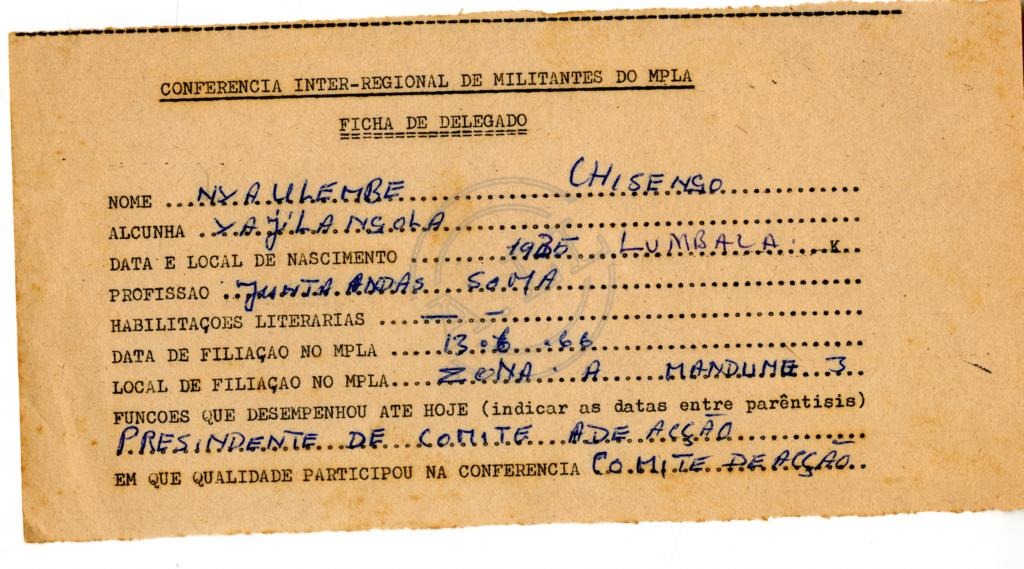 CONFERENCIA INTER-REGIONAL DE MILITANTES DO MPLA
FICHA DE DELEGADO
NOME ...NYAULEMBE CHISENGO
ALCUNHA .YAJILANGOLA
DATA E LOCAL DE NASCIMENTO ... LUMBALA. K.
PROFISSAO ... ANDAS SOMA
HABILITAÇOES LITERARIAS ... — —
DATA DE FILIAÇAO NO MPLA ...13.6.66
LOCAL DE FILIAÇAO NO MPLA....ZONA. A MANDUME 3..
FUNCOES QUE DESEMPENHOU ATE HOJE (indicar as datas entre parêntisis)
PRESINDENTE DE COMITE ADE ACÇÃO
EM QUE QUALIDADE PARTICIPOU NA CONFERENCIA COMITE DE ACÇÃO..